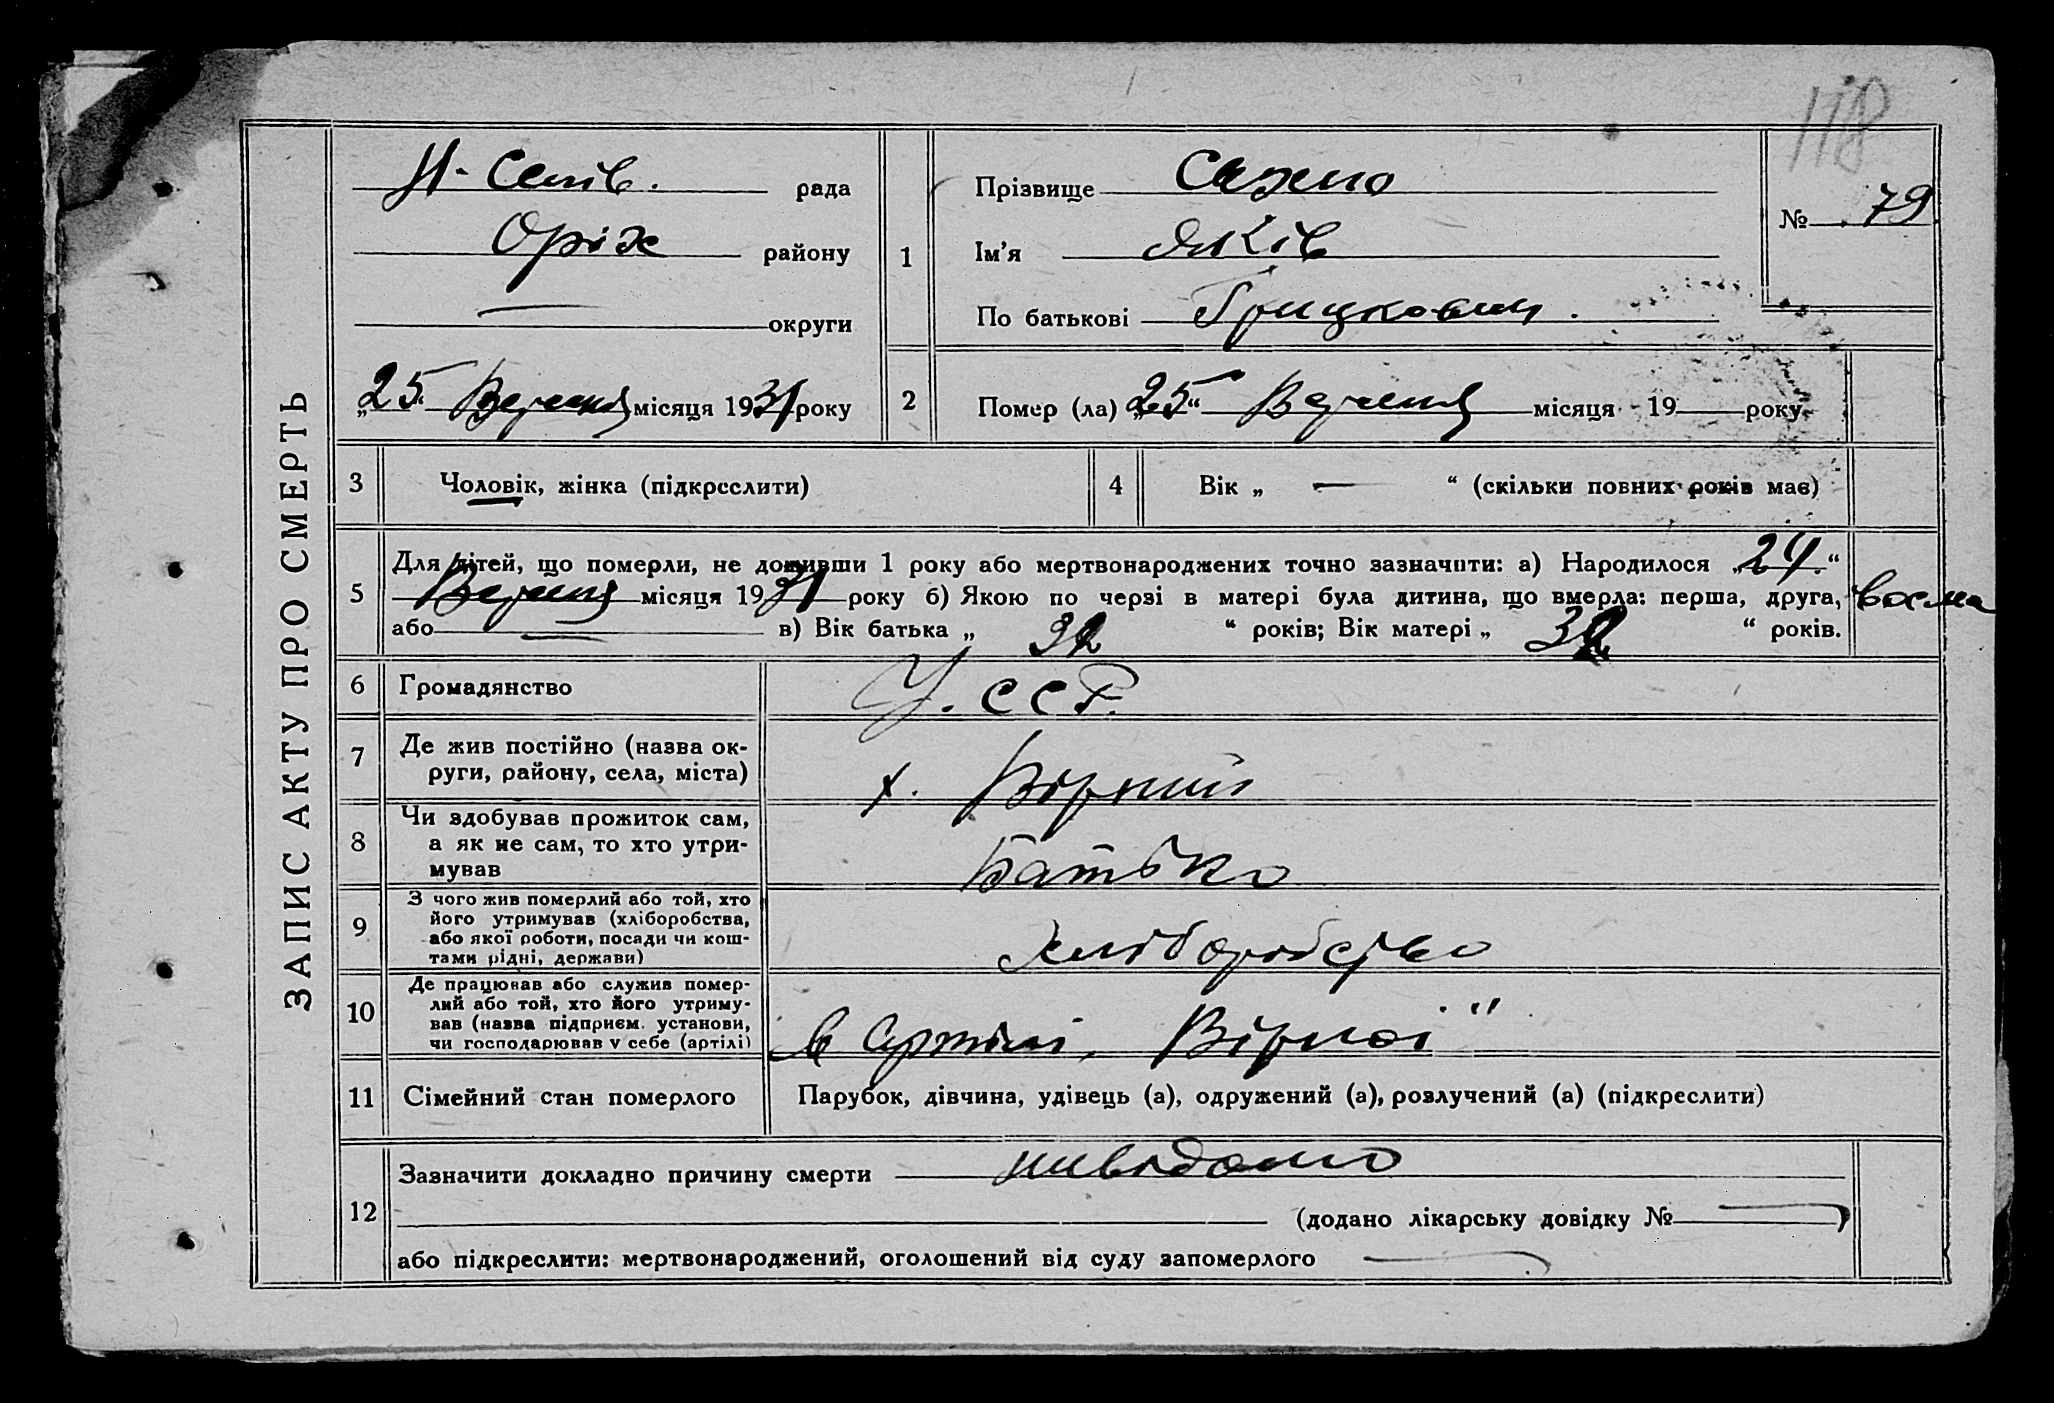 118
ЗАПИС АКТУ ПРО СМЕРТЬ
Н-Селів. рада
Оріх району
округи
„25“ Вересня місяця 1931 року
1
Прізвище Сахно
Ім'я Яків
По батькові Грицкович.
№ 79
2 Помер (ла) „25“ Вересня місяця 19 року
3 Чоловік, жінка (підкреслити)
4 Вік „ — “ (скільки повних років має)
5 Для дітей, що померли, не доживши 1 року або мертвонароджених точно зазначити: а) Народилося „24.“
Вересня місяця 1931 року б) Якою по черзі в матері була дитина, що вмерла: перша, друга, восьма
або — в) Вік батька „ “ років; Вік матері „ “ років.
6 Громадянство У. ССР.
7 Де жив постійно (назва ок-
руги, району, села, міста) х. Вірний
8 Чи здобував прожиток сам,
а як не сам, то хто утри-
мував Батько
9 З чого жив померлий або той, хто
його утримував (хліборобства,
або якої роботи, посади чи кош-
тами рідні, держави) Хліборобство
10 Де працював або служив помер-
лий або той, хто його утриму-
вав (назва підприєм. установи,
чи господарював у себе (артілі) в Артілі „Вірной"
11 Сімейний стан померлого Парубок, дівчина, удівець (а), одружений (а), розлучений (а) (підкреслити)
12 Зазначити докладно причину смерти невідомо
(додано лікарську довідку № —)
або підкреслити: мертвонароджений, оголошений від суду запомерлого —